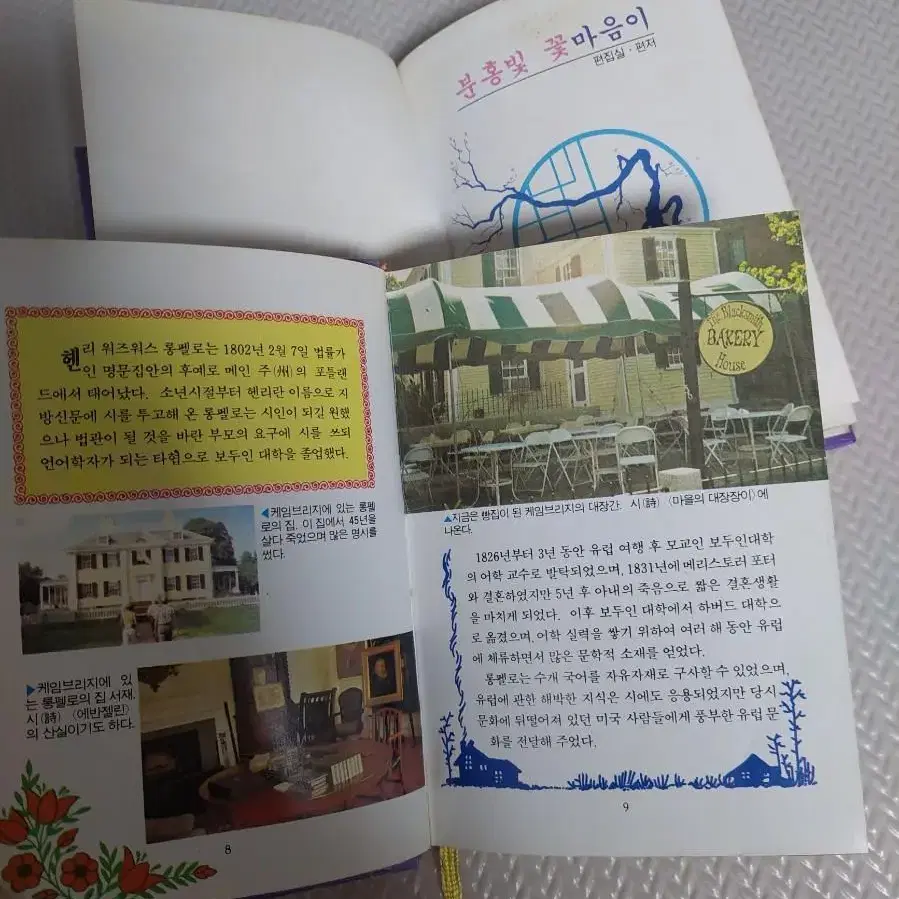 분홍빛 꽃마음이
편집실·편저
헨리 워즈워스 롱펠로는 1802년 2월 7일 법률가
인 명문집안의 후예로 메인 주(州)의 포틀랜
드에서 태어났다. 소년시절부터 헨리란 이름으로 지
방신문에 시를 투고해 온 롱펠로는 시인이 되길 원했
으나 법관이 될 것을 바란 부모의 요구에 시를 쓰되
언어학자가 되는 타협으로 보두인 대학을 졸업했다.
◀케임브리지에 있는 롱펠
로의 집. 이 집에서 45년을
살다 죽었으며 많은 명시를
썼다.
▶케임브리지에 있
는 롱펠로의 집 서재.
시(詩) 〈에반젤린〉
의 산실이기도 하다.
8
The Blacksmith
BAKERY
House
▲지금은 빵집이 된 케임브리지의 대장간. 시(詩) 〈마을의 대장장이〉에
나온다.
1826년부터 3년 동안 유럽 여행 후 모교인 보두인대학
의 어학 교수로 발탁되었으며, 1831년에 메리스토러 포터
와 결혼하였지만 5년 후 아내의 죽음으로 짧은 결혼생활
을 마치게 되었다. 이후 보두인 대학에서 하버드 대학으
로 옮겼으며, 어학 실력을 쌓기 위하여 여러 해 동안 유럽
에 체류하면서 많은 문학적 소재를 얻었다.
롱펠로는 수개 국어를 자유자재로 구사할 수 있었으며,
유럽에 관한 해박한 지식은 시에도 응용되었지만 당시
문화에 뒤떨어져 있던 미국 사람들에게 풍부한 유럽 문
화를 전달해 주었다.
9